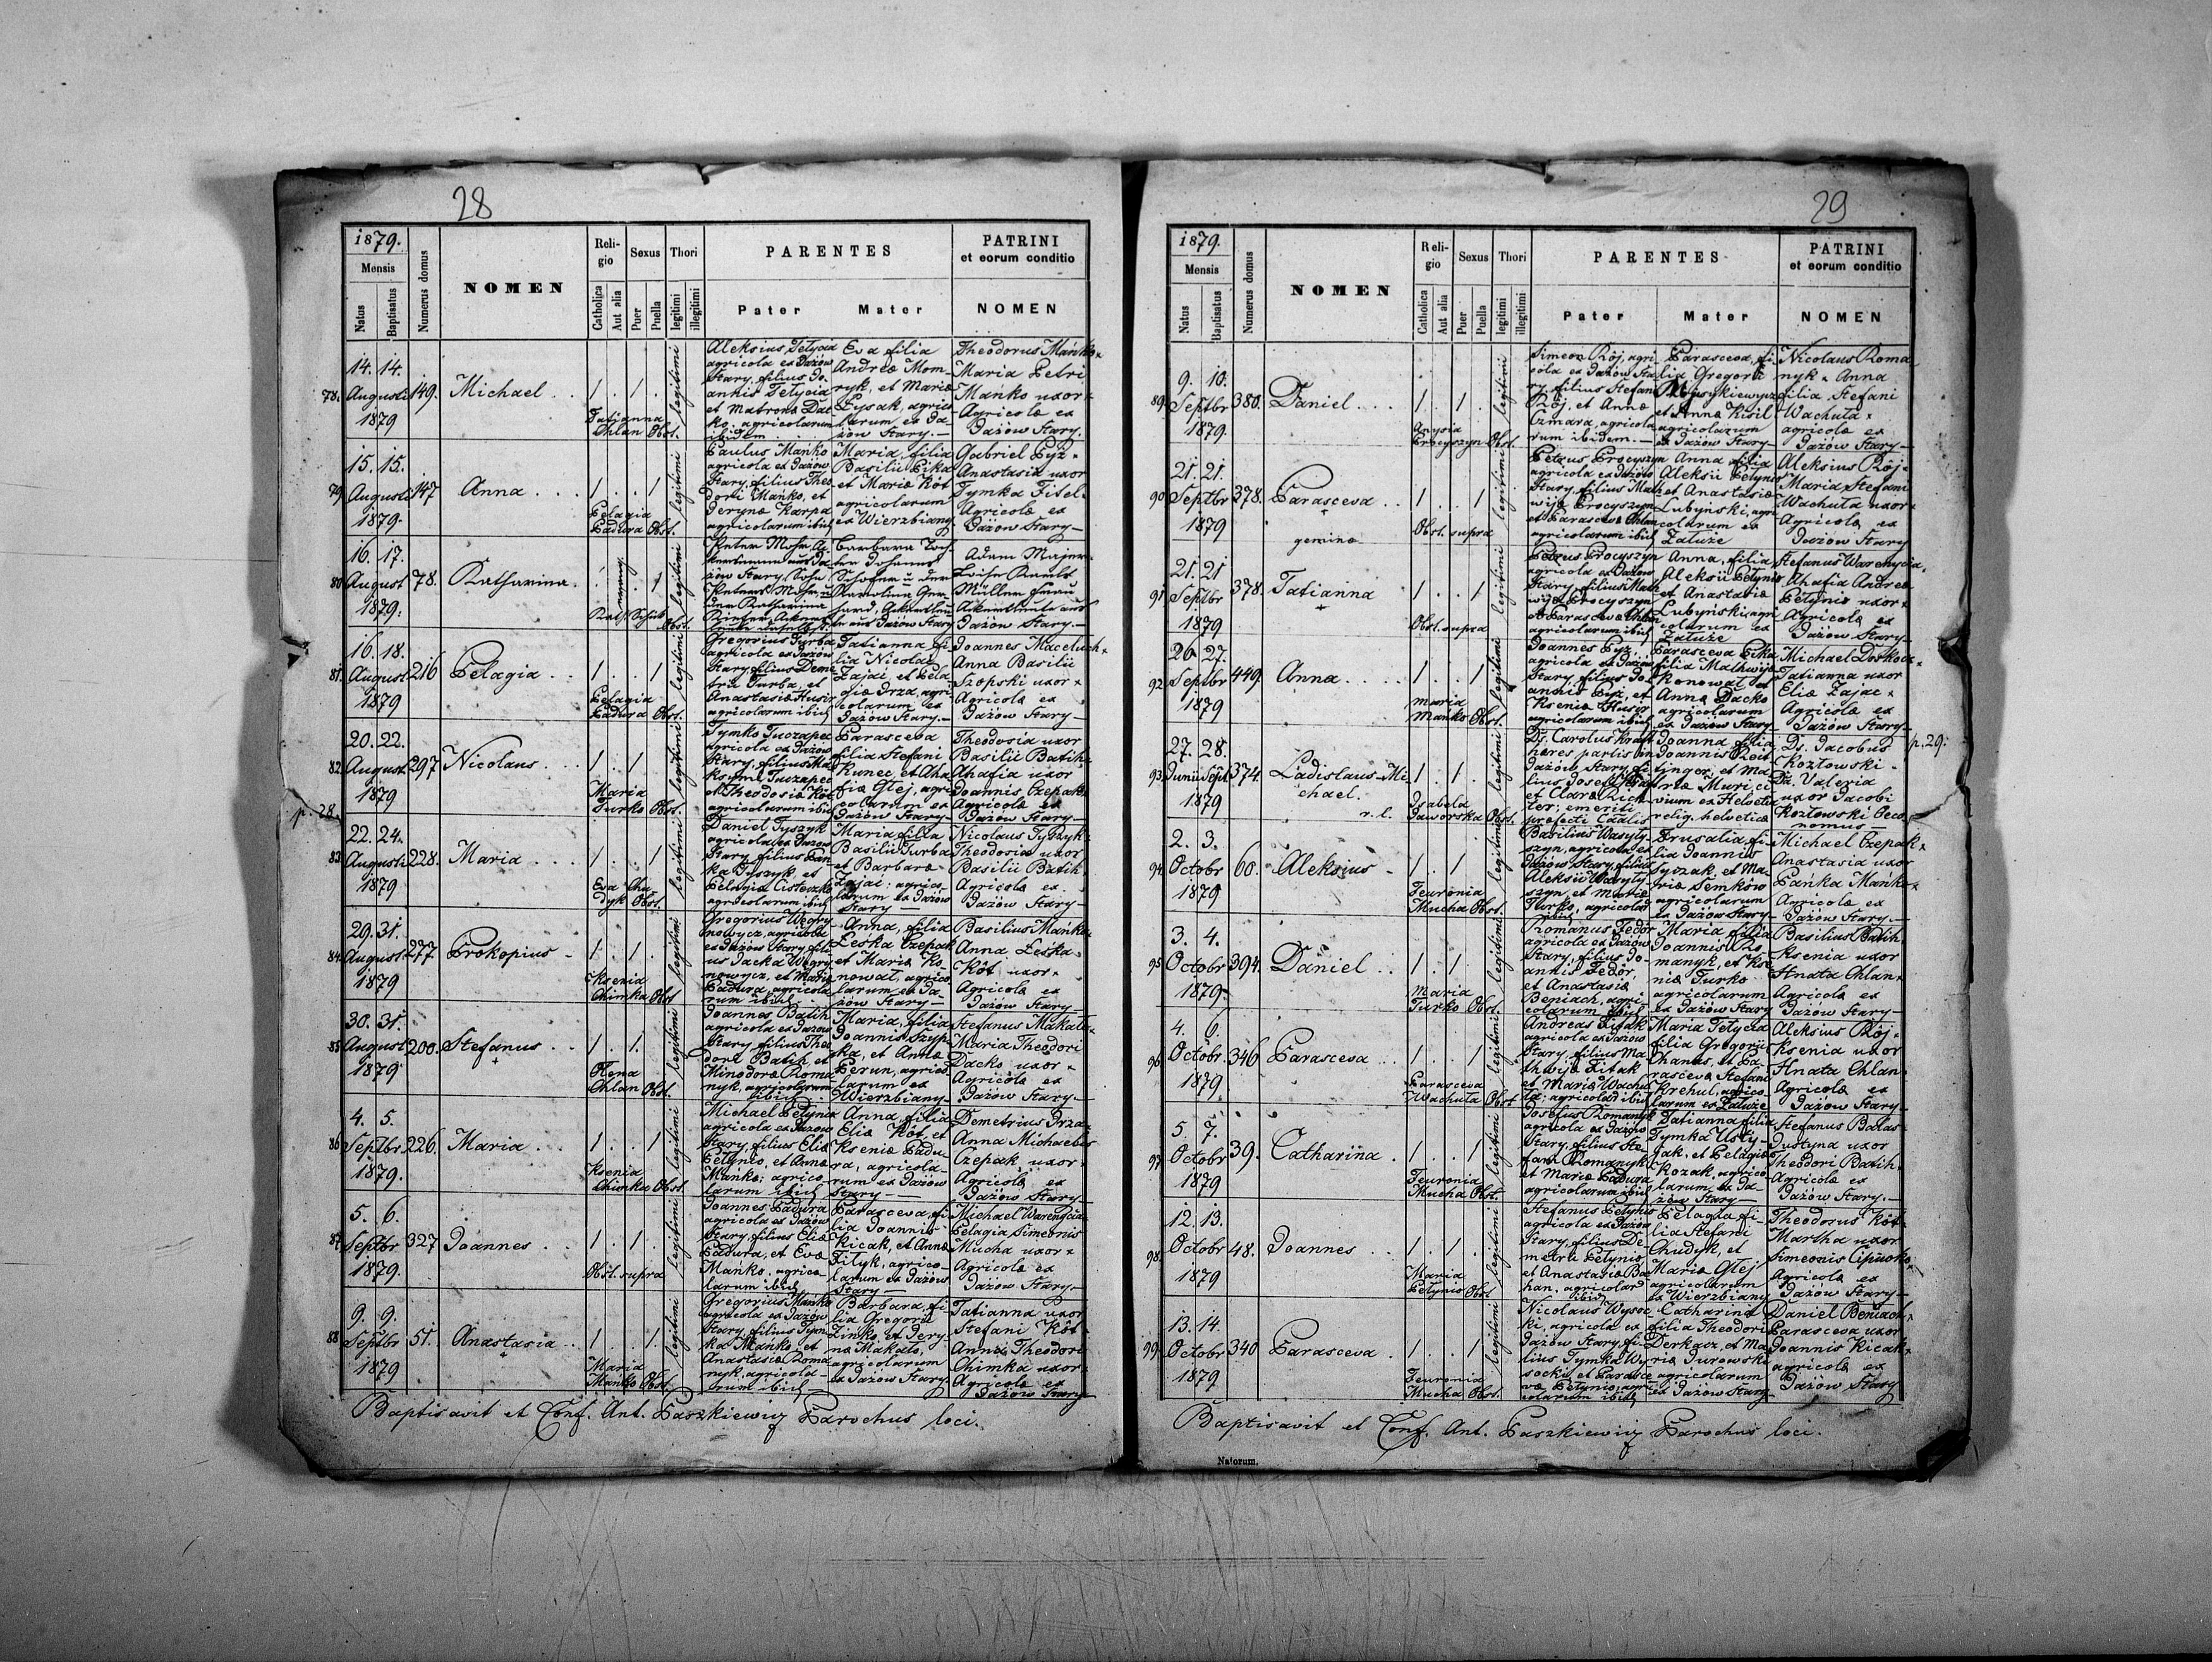 28
1879.
Mensis
Natus
Baptisatus
Numerus domus
NOMEN
Reli-
gio
Catholica
Aut alia
Sexus
Puer
Puella
Thori
legitimi
illegitimi
PARENTES
Pater
Mater
PATRINI
et eorum conditio
NOMEN
78.
14. 14.
Augusti
1879
149.
Michael
1 . 1 .
Tatianna
Chlan Obst.
legitimi
Aleksius Tetycia
agricola ex Jazów
Stary, filius Jo-
annis Tetycia
et Matrona Dac
ko, agricolarum
ibidem
Eva filia
Andreæ Mom-
ryk, et Mariæ
Lysak, agrico
larum ex Ja-
zów Stary.—
Theodorus Mańko
Maria Petri
Mańko uxor
Agricolæ ex
Jazów Stary.
79
15. 15.
Augusti
1879.
147
Anna
1 . . 1
Pelagia
Badura Obst.
legitimi
Paulus Mańko
agricola ex Jazów
Stary, filius Theo
dori Mańko, et
Jerynæ Karpa
agricolarum ibid
Maria, filia
Basilii Pika
et Mariæ Kôt
agricolarum
ex Wierzbiany
Gabriel Pyz
Anastasia uxor
Tymka Fisel
Agricolæ ex
Jazów Stary—
80
16. 17.
August
1879.
78.
Katharina.
legitimi
Obst.
Peter Mohr
Barbara Toch-
ter Johanns
Adam Majer
Müller Frau
Jazów Stary.—
81.
16. 18.
August
1879
216
Pelagia
1 . . 1
Pelagia
Badura Obst.
legitimi
Gregorius Turba
agricola ex Jazów
Stary, filius Deme
trii Turba, et
Anastasiæ Husir
agricolarum ibid
Tatianna fi-
lia Nicolai
Zajac et Pela
giæ Drza, agri
colarum ex
Jazów Stary.—
Joannes Maceluch
Anna Basilii
Szopski uxor
Agricolæ ex
Jazów Stary—
82.
20. 22.
August.
1879
297
Nicolaus
1 . 1
Maria
Turko Obst.
legitimi
Tymko Tuczapec
agricola ex Jazów
Stary, filius Ma
ksymi Tuczapec
et Theodosiæ Kôt
agricolarum ibid
Parasceva
filia Stefani
Kunec, et Aha
fiæ Glej, agri
colarum ex
Jazów Stary—
Theodosia uxor
Basilii Batih
Ahafia uxor
Joannis Czepak
Agricolæ ex
Jazów Stary—
p. 28.
83
22. 24.
Augusti
1879
228.
Maria
1 . . 1
Eva Chu
dyk Obst.
legitimi
Daniel Tyszyk
agricola ex Jazów
Stary, filius Pań
ka Tyszyk, et
Pelagiæ Cisteczko
agricolarum ibid
Maria filia
Basilii Turba
et Barbaræ
Zajac; agrico
larum ex Jazów
Stary—
Nicolaus Tyszyk
Theodosia uxor
Basilii Batih
Agricolæ ex
Jazów Stary—
84
29. 31.
August
1879
277
Prokopius
1 . 1 .
Ksenia
Chimka Obst
legitimi
Gregorius Węgry
nowycz, agricola
ex Jazów Stary fili
us Jacka Węgry
nowycz, et Mariæ
Badura, agricola
rum ibid.
Anna, filia
Leska Czepak
et Mariæ Ko
nowal, agrico
larum ex Ja-
zów Stary—
Basilius Mańko
Anna Leska
Kôt uxor
Agricolæ ex
Jazów Stary—
85
30. 31.
August
1879
200.
Stefanus
1 . 1.
Olena
Chlan Obst.
legitimi
Joannes Batih
agricola ex Jazów
Stary filius Theo
dori Batih et
Minodoræ Roma
nyk, agricolarum
ibid
Maria, filia
Joannis Szyp
ka, et Annæ
Perun, agrico
larum ex
Wierzbiany
Stefanus Makata
Maria Theodori
Dacko uxor
Agricolæ ex
Jazów Stary.—
86
4. 5.
Septbr
1879.
226.
Maria
1 . . 1
Ksenia
Chimka Obst.
legitimi
Michael Petynio
agricola ex Jazów
Stary, filius Eliæ
Petynio, et Annæ
Mańko; agrico-
larum ibid
Anna, filia
Eliæ Kôt, et
Kseniæ Badu-
ra, agricola-
rum ex Jazów
Stary—
Demetrius Drza
Anna Michaelis
Czepak uxor
Agricolæ ex
Jazów Stary—
87
5. 6.
Septbr
1879.
327
Joannes
1 . 1 .
Obst. supra
legitimi
Joannes Badura
agricola ex Jazów
Stary, filius Eliæ
Badura, et Evæ
Mańko, agrico
larum ibid
Parasceva, fi-
lia Joannis
Kicak, et Annæ
Fityk, agrico-
larum ex Jazów
Stary—
Michael Warenycia
Pelagia Simeonis
Mucha uxor
Agricolæ ex
Jazów Stary—
88
9. 9.
Septbr
1879
51.
Anastasia
1 . . 1.
Maria
Mańko Obst.
legitimi
Gregorius Mańko
agricola ex Jazów
Stary, filius Tym
ka Mańko, et
Anastasiæ Roma
nyk, agricola-
rum ibid
Barbara, fi-
lia Gregorii
Zinko, et Jery-
næ Makato,
agricolarum
ex Jazów Stary.
Tatianna uxor
Stefani Kôt
Anna Theodori
Chimka uxor
Agricolæ ex
Jazów Stary
Baptisavit et Conf. Ant. Paszkiewicz Parochus loci.
29
1879.
Mensis
Natus
Baptisatus
Numerus domus
NOMEN
Reli-
gio
Catholica
Aut alia
Sexus
Puer
Puella
Thori
legitimi
illegitimi
PARENTES
Pater
Mater
PATRINI
et eorum conditio
NOMEN
89
9. 10.
Septbr
1879.
380.
Daniel
1 . 1 .
Anysia
Procyszyn Obst.
legitimi
Simeon Rôj, agri
cola ex Jazów Sta
ry, filius Stefani
Rôj, et Annæ
Czmara, agricola
rum ibidem.—
Parasceva, fi-
lia Gregorii
et Annæ Kisil
agricolarum
ex Jazów Stary—
Nicolaus Roma
nyk Anna
filia Stefani
Wachuta
agricolæ ex
Jazów Stary—
90
21. 21.
Septbr
1879
378.
Parasceva
geminæ
1 . . 1
Obst. supra
legitimi
Petrus Procyszyn
agricola ex Jazów
Stary, filius Mat
wija Procyszyn
et Parascevæ Chlan
agricolarum ibid
Anna, filia
Aleksii Petynio
et Anastasiæ
Lubyński, agri
colarum ex
Załuże
Aleksius Rôj
Maria Stefani
Wachuta uxor
Agricolæ ex
Jazów Stary
91
21. 21
Septbr
1879
378.
Tatianna
1 . . 1
Obst. supra
legitimi
Petrus Procyszyn
agricola ex Jazów
Stary, filius Mat
wija Procyszyn
et Parascevæ Chlan
agricolarum ibid
Anna, filia
Aleksii Petynio
et Anastasiæ
Lubyński agri
colarum ex
Załuże
Stefanus Warenycia
Ahafia Andreæ
Petynio uxor
Agricolæ ex
Jazów Stary—
92
26. 27.
Septbr
1879
449.
Anna
1 . . 1
Maria
Mańko Obst.
legitimi
Joannes Pyz
agricola ex Jazów
Stary, filius Jo-
annis Pyz, et
Kseniæ Husir
agricolarum ibid
Parasceva Pika
filia Mathwija
Konowal et
Annæ Dacko
agricolarum
ex Jazów Stary
Michael Doskocz
Tatianna uxor
Eliæ Zajac
Agricolæ ex
Jazów Stary—
93
27. 28.
Junii Sept.
1879
374
Ladislaus Mi-
chael.
r. l.
1 . 1 .
Isabela
Jaworska Obst.
legitimi
Ds. Carolus Kraft
hæres partis in
Jazów Stary fi
lius Josephi
et Claræ Rich
ter; emeriti
Joanna filia
Joannis
et Ma
riæ Muri, ci
vium ex Helvetia
relig. helvetica
Ds. Jacobus
Kozłowski
Da. Valeria
uxor Jacobi
Kozłowski Oeco
nomus—
p. 29.
94
2. 3.
Octobr
1879
60.
Aleksius
1 . 1
Feuronia
Mucha Obst.
legitimi
Basilius Wasyły
szyn, agricola ex
Jazów Stary, filius
Aleksii Wasyły
szyn, et Mariæ
Turko, agricolar
ibid
Erusalia, fi-
lia Joannis
Syczak, et Ma-
riæ Semków
agricolarum
ex Jazów Stary—
Michael Czepak
Anastasia uxor
Pańka Mańko
Agricolæ ex
Jazów Stary.—
95
3. 4.
Octobr
1879
394.
Daniel
1 . 1
Maria
Turko Obst.
legitimi
Romanus Fedor
agricola ex Jazów
Stary, filius Jo-
annis Fedôr,
et Anastasiæ
Beniach, agri-
colarum ibid
Maria filia
Joannis Ro
manyk, et Kse
niæ Turko
agricolarum
ex Jazów Stary
Basilius Batih
Ksenia uxor
Hnata Chlan
Agricolæ ex
Jazów Stary—
96
4. 6.
Octobr
1879.
346
Parasceva
1 . . 1
Parasceva
Wachuta Obst
legitimi
Andreas Fitak
agricola ex Jazów
Stary, filius Ma
thwija Fitak
et Mariæ Wachu
ta; agricolar ibid
Maria Tetycia
filia Gregorii
Chanas, et Pa
rascevæ Stefani
Krehul, agrico-
larum ex Załuże
Aleksius Rôj
Ksenia uxor
Hnata Chlan
Agricolæ ex
Jazów Stary—
97
5. 7.
Octobr
1879
39.
Catharina
1 . . 1
Feuronia
Mucha Obst.
legitimi
Josefus Romanyk
agricola ex Jazów
Stary, filius Ste-
fani Romanyk
et Mariæ Badura
agricolarum ibid
Tatianna filia
Tymka Usty-
jak, et Pelagiæ
Kozak, agrico
larum, ex Ja-
zów Stary—
Stefanus Balas
Justyna uxor
Theodori Batih
Agricolæ ex
Jazów Stary.—
98.
12. 13.
Octobr
1879
48.
Joannes
1 . 1 .
Maria
Petynio Obst
legitimi
Stefanus Petynio
agricola ex Jazów
Stary, filius De
metrii Petynio
et Anastasiæ Ba
han, agricolar
ibid
Pelagia fi-
lia Stefani
Chudyk, et
Mariæ Glej
agricolarum
ex Wierzbiany
Theodorus Kôt
Martha uxor
Simeonis Cipuoko
Agricolæ ex
Jazów Stary—
99
13. 14.
Octobr
1879
340
Parasceva
1 . . 1
Feuronia
Mucha Obst.
legitimi
Nicolaus Wysoc
ki, agricola ex
Jazów Stary, fi-
lius Tymka Wy
socki, et Parasce
væ Petynio, agri
colarum ibid
Catharina
filia Theodori
Derkacz, et Ma
riæ Jurowski
agricolarum
ex Jazów Stary
Daniel Beniach
Parasceva uxor
Joannis Kicak
agricolæ ex
Jazów Stary
Baptisavit et Conf. Ant. Paszkiewicz Parochus loci.
Natorum.